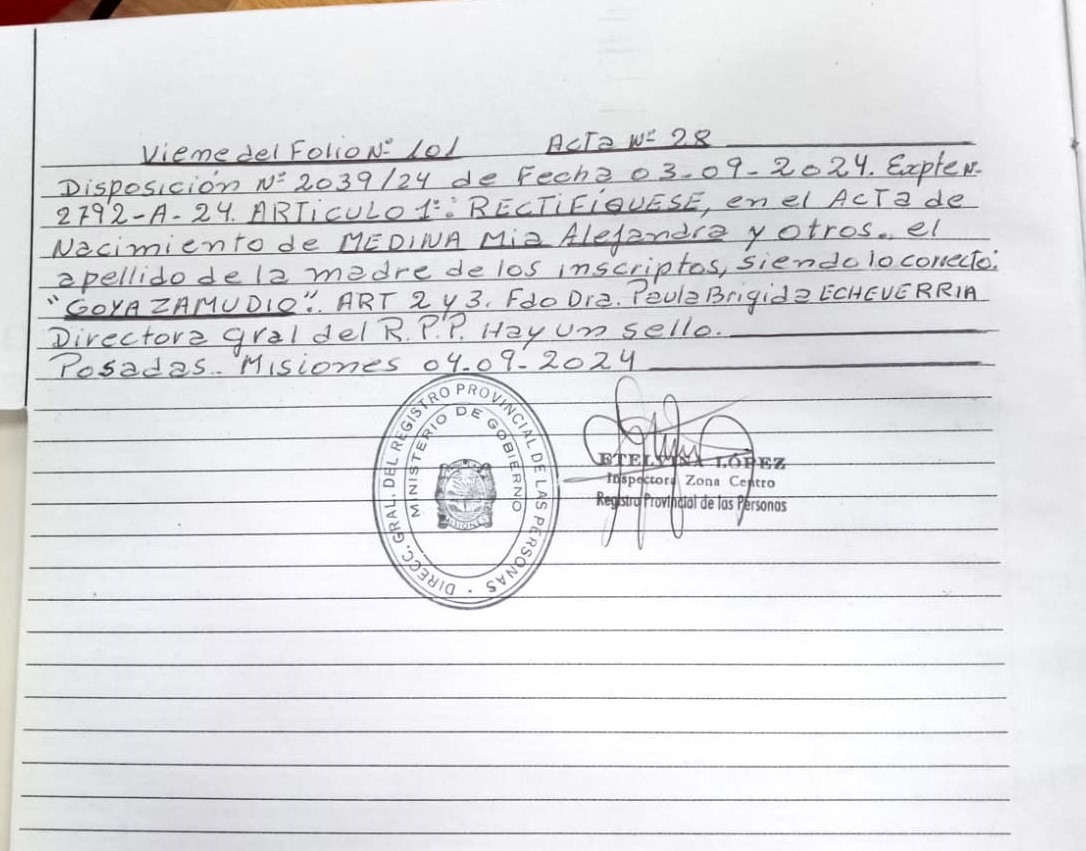 Viene del Folio Nº 101 Acta Nº 28
Disposición Nº 2039/24 de Fecha 03-09-2024. Expte N.
2792-A-24. ARTICULO 1º: RECTIFÍQUESE, en el Acta de
Nacimiento de MEDINA Mia Alejandra y otros. el
apellido de la madre de los inscriptos, siendo lo correcto:
"GOYA ZAMUDIO". ART 2 y 3. Fdo Dra. Paula Brigida ECHEVERRIA
Directora Gral del R.P.P. Hay un sello.
Posadas. Misiones 04-09-2024
DIRECC. GRAL. DEL REGISTRO PROVINCIAL DE LAS PERSONAS
MINISTERIO DE GOBIERNO
MISIONES
ETELVINA LÓPEZ
Inspectora Zona Centro
Registro Provincial de las Personas